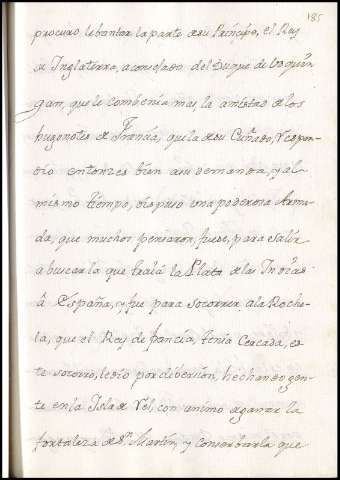 185
procuro lebantar la parte de su Principe, el Rey
de Inglaterra, aconsejado del Duque de boquin
gan, que le combenia mas la amistad de los
hugonotes de Francia, que la de su Cuñado, respon-
dio entonzes bien a su demanda, y al
mismo tiempo, dispuso una poderosa Arma-
da, que muchos pensaron, fuese, para salir
a buscar la que traía la Plata de las Indias
â España, y fue para socorrer, a la Roche-
la, que el Rey de francia, tenía Cercada, es-
te socorro, le dio por diberсion, hechando gen-
te en la Isla de Rel, con animo de ganar la
fortaleza de Sn. Martin, y conserbarla que